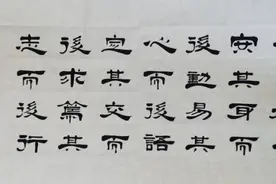 安其身而
後動易其
心而後語
定其交而
後求篤其
志而後行